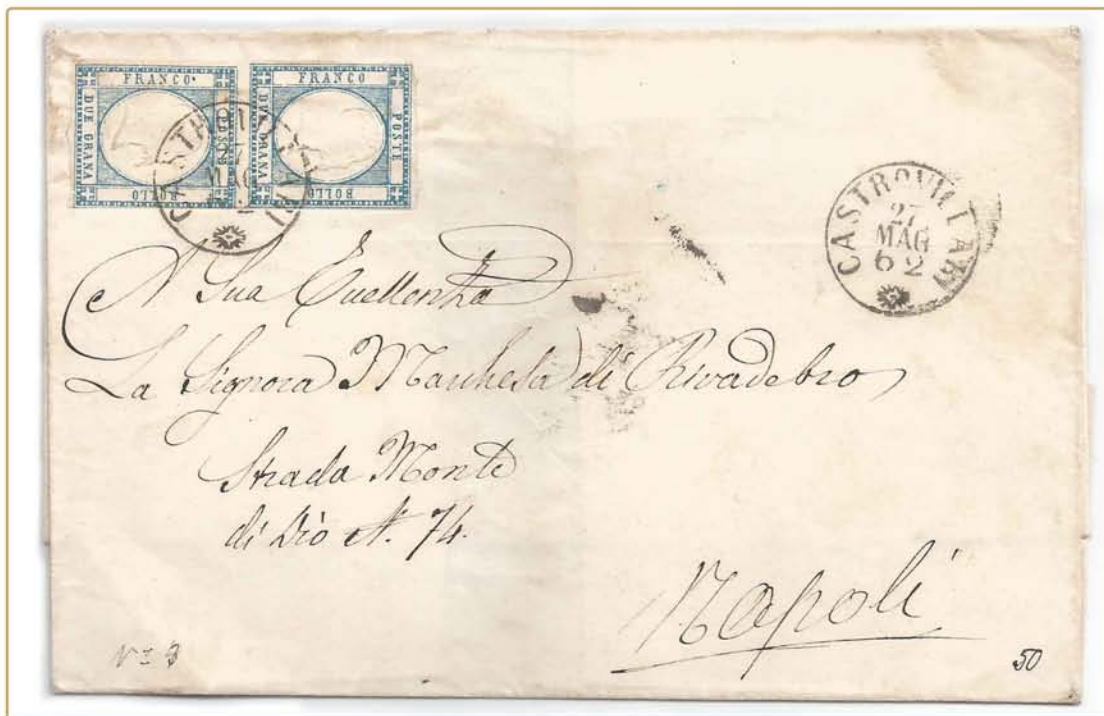 FRANCO
DUE GRANA
POSTE
BOLLO
FRANCO
DUE GRANA
POSTE
BOLLO
CASTROVILLARI
27
MAG
CASTROVILLARI
27
MAG
62
A Sua Eccellenza
La Signora Marchesa di Rivadebro
Strada Monte
di Dio N. 74.
Napoli
50